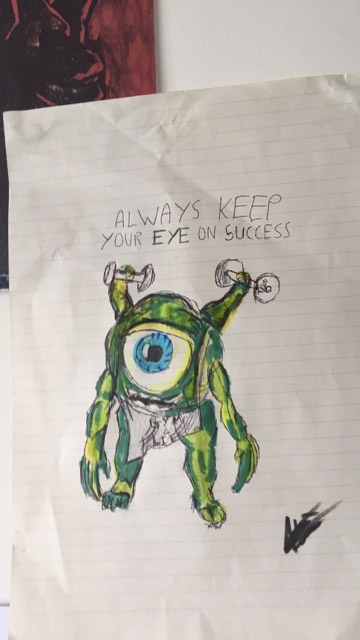 ALWAYS KEEP
YOUR EYE ON SUCCESS